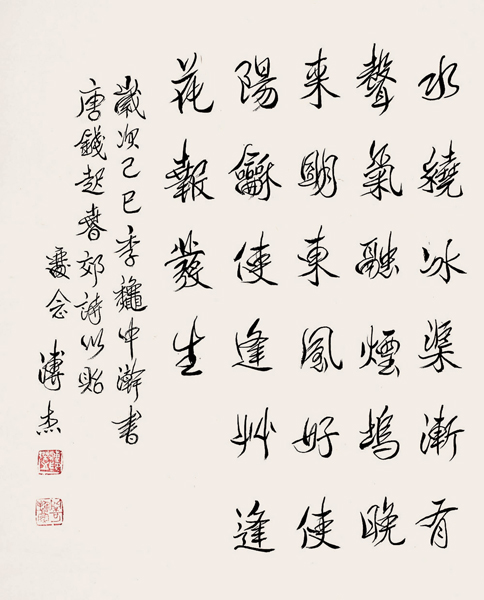 水繞冰渠漸有
聲氣融煙塢晚
来朙東風好使
陽龢使逢艸逢
花報發生
歲次己巳季龝中澣書
唐錢起春郊詩以貽
念 溥杰